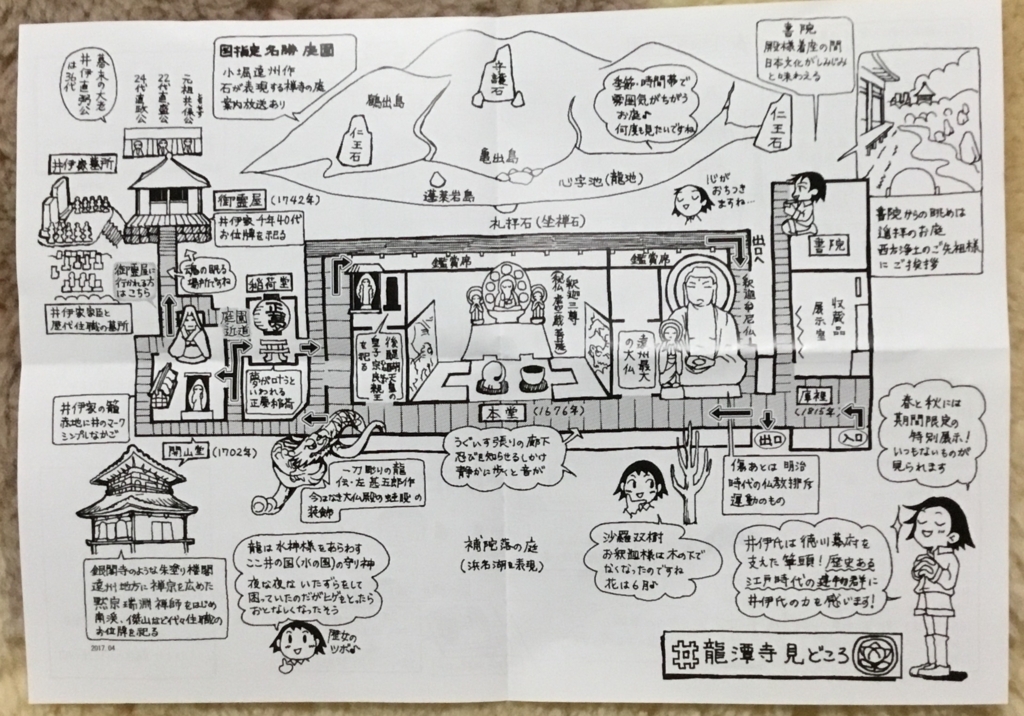 幕末の大老
井伊直弼公
は36代
元祖共保公
22代直盛公
24代直政公
国指定名勝庭園
小堀遠州作
石が表現する禅寺の庭
案内放送あり
鶴出島
守護石
仁王石
亀出島
蓬莱岩島
心字池(龍池)
礼拝石(坐禅石)
季節・時間帯で
雰囲気がちがう
お庭♪
何度も見たいですね
仁王石
書院
殿様着座の間
日本文化がしみじみ
と味わえる
書院からの眺めは
遠拝のお庭
西方浄土のご先祖様
にご挨拶
心が
おちつき
ますね…
井伊家墓所
御霊屋(1742年)
井伊家千年40代
お位牌を祀る
御霊屋に
行かれる方
はこちら
魂の眠る
場所ですね
井伊家家臣と
歴代住職の墓所
稲荷堂
庭園
近道
夢が叶うと
いわれる
正夢稲荷
正夢
井伊家の籠
赤地に井のマーク
シンプルなかご
開山堂(1702年)
後醍醐天皇の
皇子宗良親王
を祀る
鑑賞席
釈迦三尊
秘仏虚空蔵菩薩
鑑賞席
遠州最大
の大仏
釈迦牟尼仏
出口へ
書院
収蔵品
展示室
庫裡
(1815年)
入口
出口
本堂(1676年)
一刀彫りの龍
伝・左甚五郎作
今はなき大仏殿の蛙股の
装飾
うぐいす張りの廊下
忍びを知らせるしかけ
静かに歩くと音が
傷あとは明治
時代の仏教排斥
運動のもの
春と秋には
期間限定の
特別展示!
いつもないものが
見られます
銀閣寺のような朱塗り楼閣
遠州地方に禅宗を広めた
黙宗瑞淵禅師をはじめ
南渓、傑山など代々住職の
お位牌を祀る
2017.04
龍は水神様をあらわす
ここ井の国(水の国)の守り神
夜な夜ないたずらをして
困っていたのだがヒゲをとったら
おとなしくなったそう
歴女の
ツボ♪
補陀落の庭
(浜名湖を表現)
沙羅双樹
お釈迦様は木の下で
なくなったのですね
花は6月♪
井伊氏は徳川幕府を
支えた筆頭!歴史ある
江戸時代の建物群に
井伊氏の力を感じます!
井龍潭寺見どころ